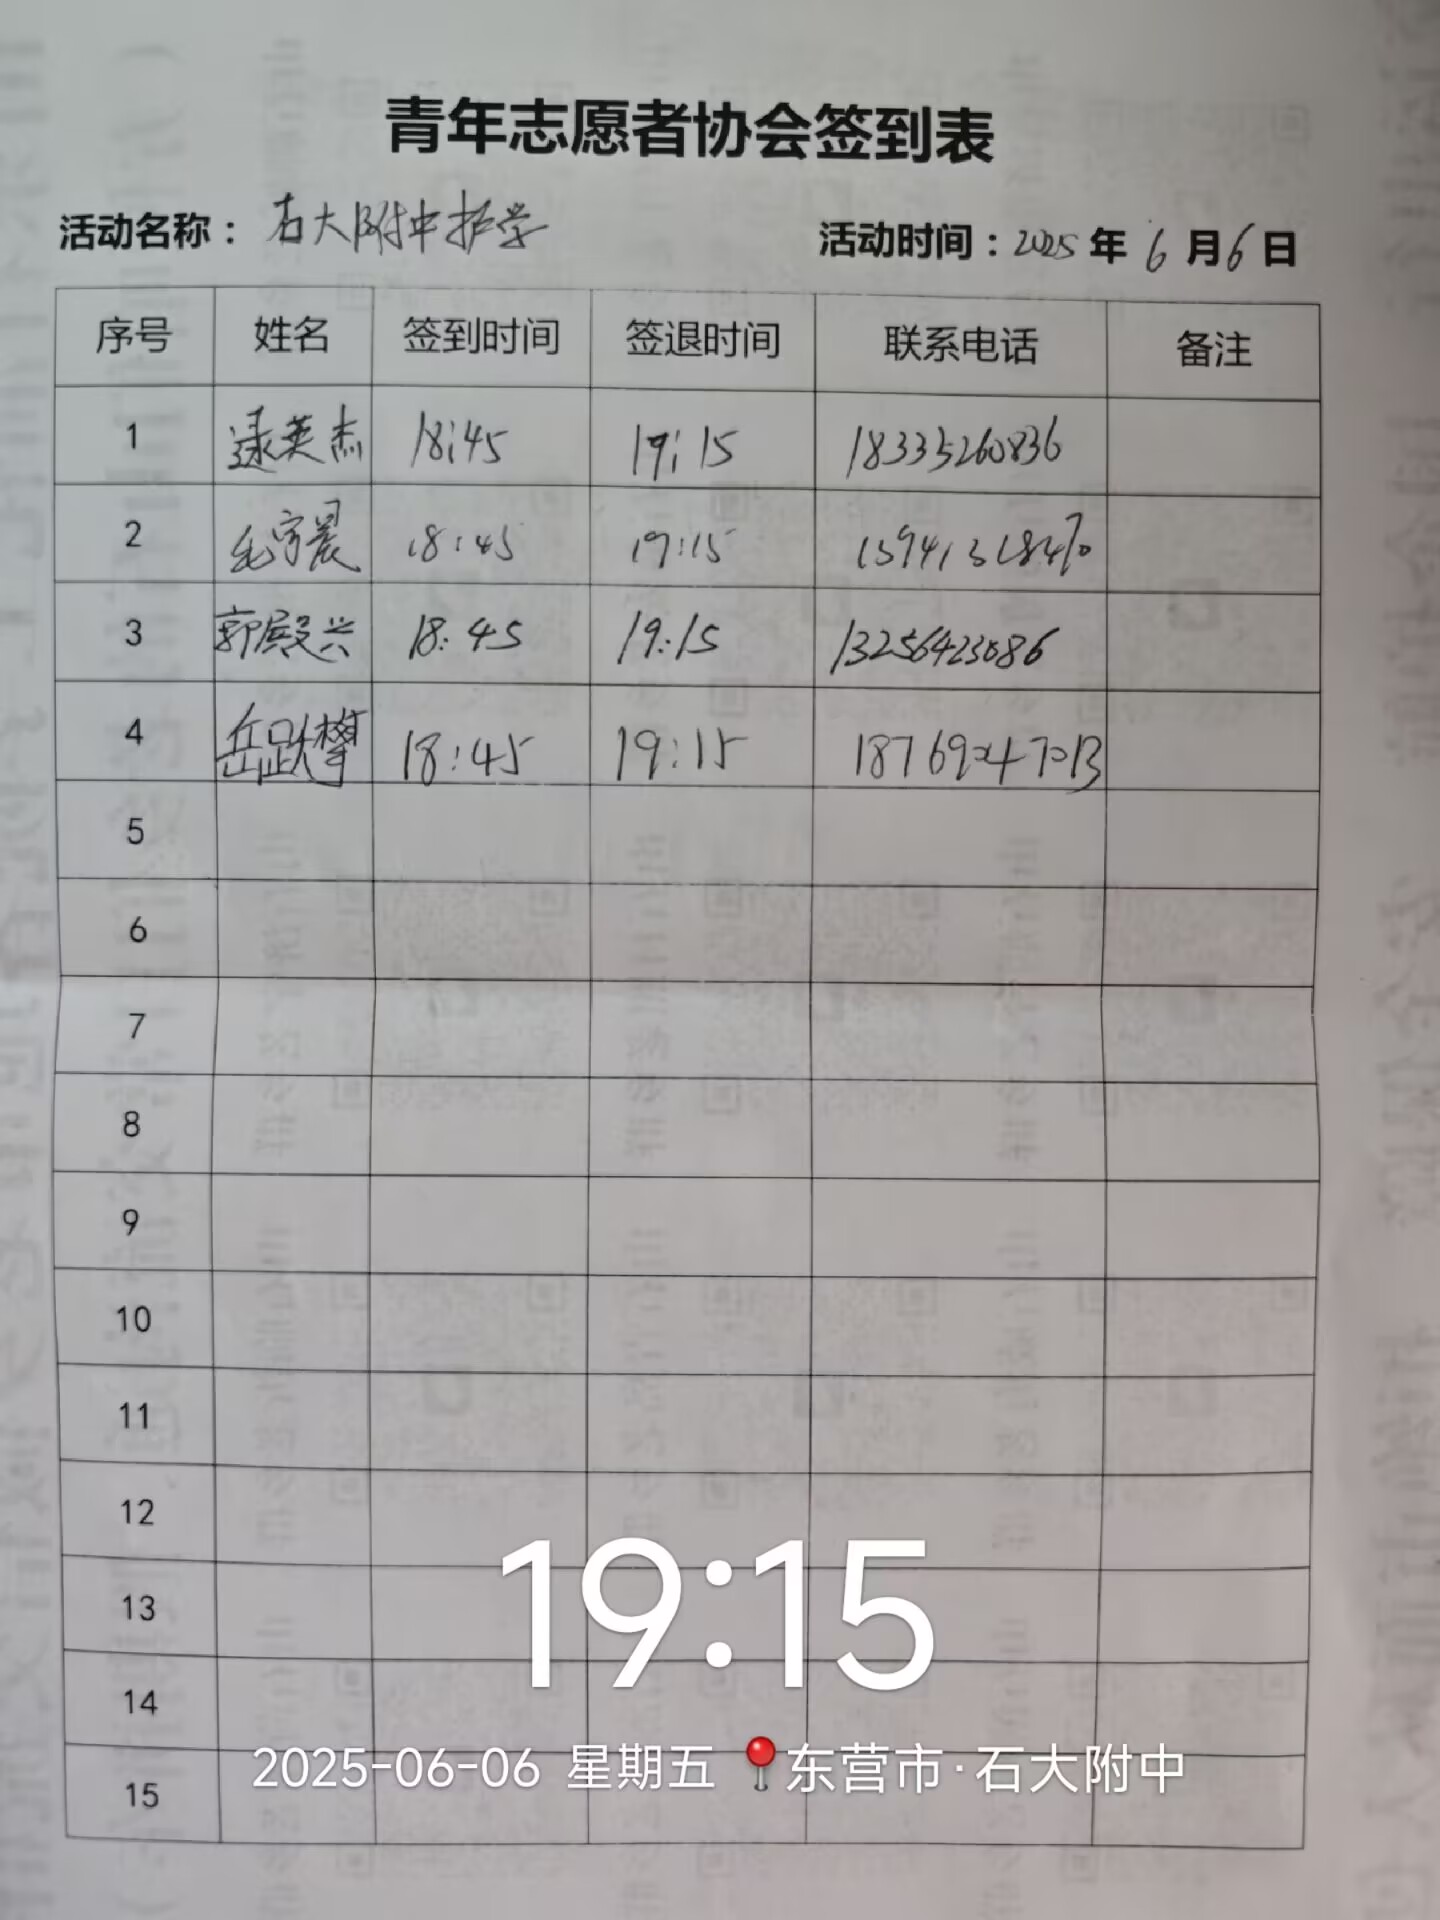 青年志愿者协会签到表
活动名称：石大附中护学 活动时间：2025年6月6日
序号 姓名 签到时间 签退时间 联系电话 备注
1 逯英杰 18:45 19:15 18335260836
2 毛宇晨 18:45 19:15
3 郭殿兴 18:45 19:15 13256423086
4 岳跃攀 18:45 19:15 18769247213
5
6
7
8
9
10
11
12
13
14
15
19:15
2025-06-06 星期五 东营市·石大附中